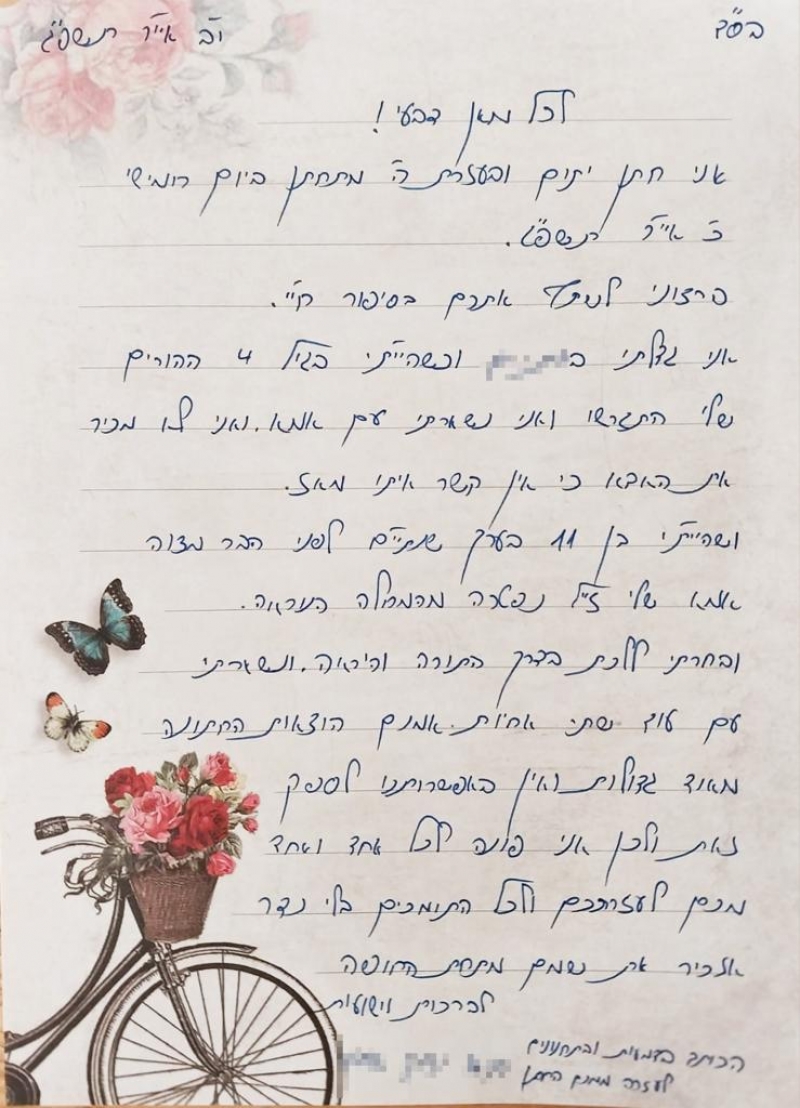 בס"ד
י"ב אייר תשפ"ג
לכל מאן דבעי!
אני חתן יתום ובעזרת ה' מתחתן ביום חמישי
כ' אייר תשפ"ג.
ברצוני לשתף אתכם בסיפור חיי.
אני גדלתי ב וכשהייתי בגיל 4 ההורים
שלי התגרשו ואני נשארתי עם אמא. ואני לא מכיר
את האבא כי אין קשר איתו מאז.
וכשהייתי בן 11 בערך שנתיים לפני הבר מצוה
אמא שלי ז"ל נפטרה מהמחלה הנוראה.
ובחרתי ללכת בדרך התורה והיראה. ונשארתי
עם עוד שתי אחיות. אמנם הוצאות החתונה
מאוד גדולות ואין באפשרותנו לספק
זאת ולכן אני פונה לכל אחד ואחד
מכם לעזרתכם ולכל התומכים בלי נדר
אזכיר את שמם מתחת החופה
לברכות וישועות
הכותב בדמעות ובתחנונים
לעזרה החתן